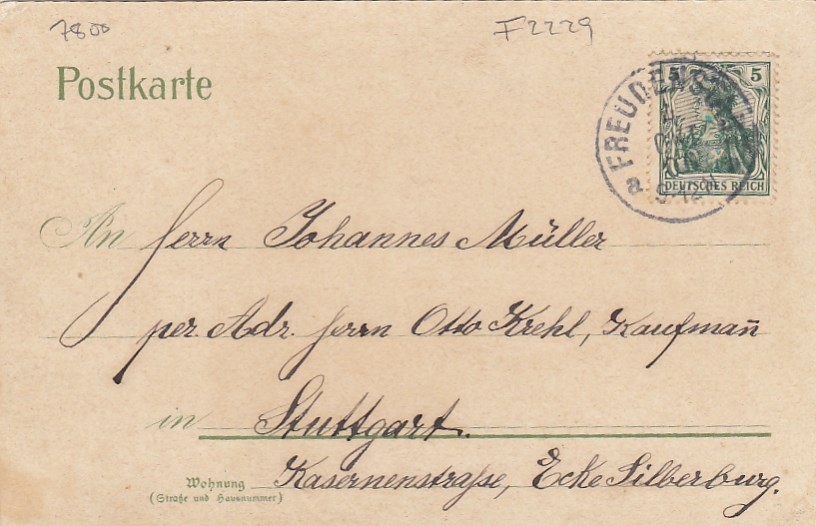 7800
F2229
Postkarte
5 5
FREUDENS
DEUTSCHES REICH
a
An Herrn Johannes Müller
per. Adr. Herrn Otto Krehl, Kaufman̄
in Stuttgart.
Wohnung Kasernenstraße, Ecke Silberburg.
(Straße und Hausnummer)